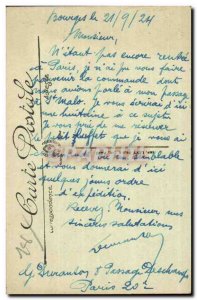 Bourges le 21/9/24
Monsieur,
N'étant pas encore rentré
à Paris, je n'ai pu vous faire
parvenir la commande dont
nous avions parlé à mon passage
St Malo. Je vous écrirai d'ici
une huitaine à ce sujet
Je vous prie de me réserver
buffet que je vous ai
semblable
et vous donnerai d'ici
quelques jours ordre
d'expédition.
Recevez Monsieur mes
sincères salutations
8 Passage
Paris 20e
Carte Postale
Correspondance